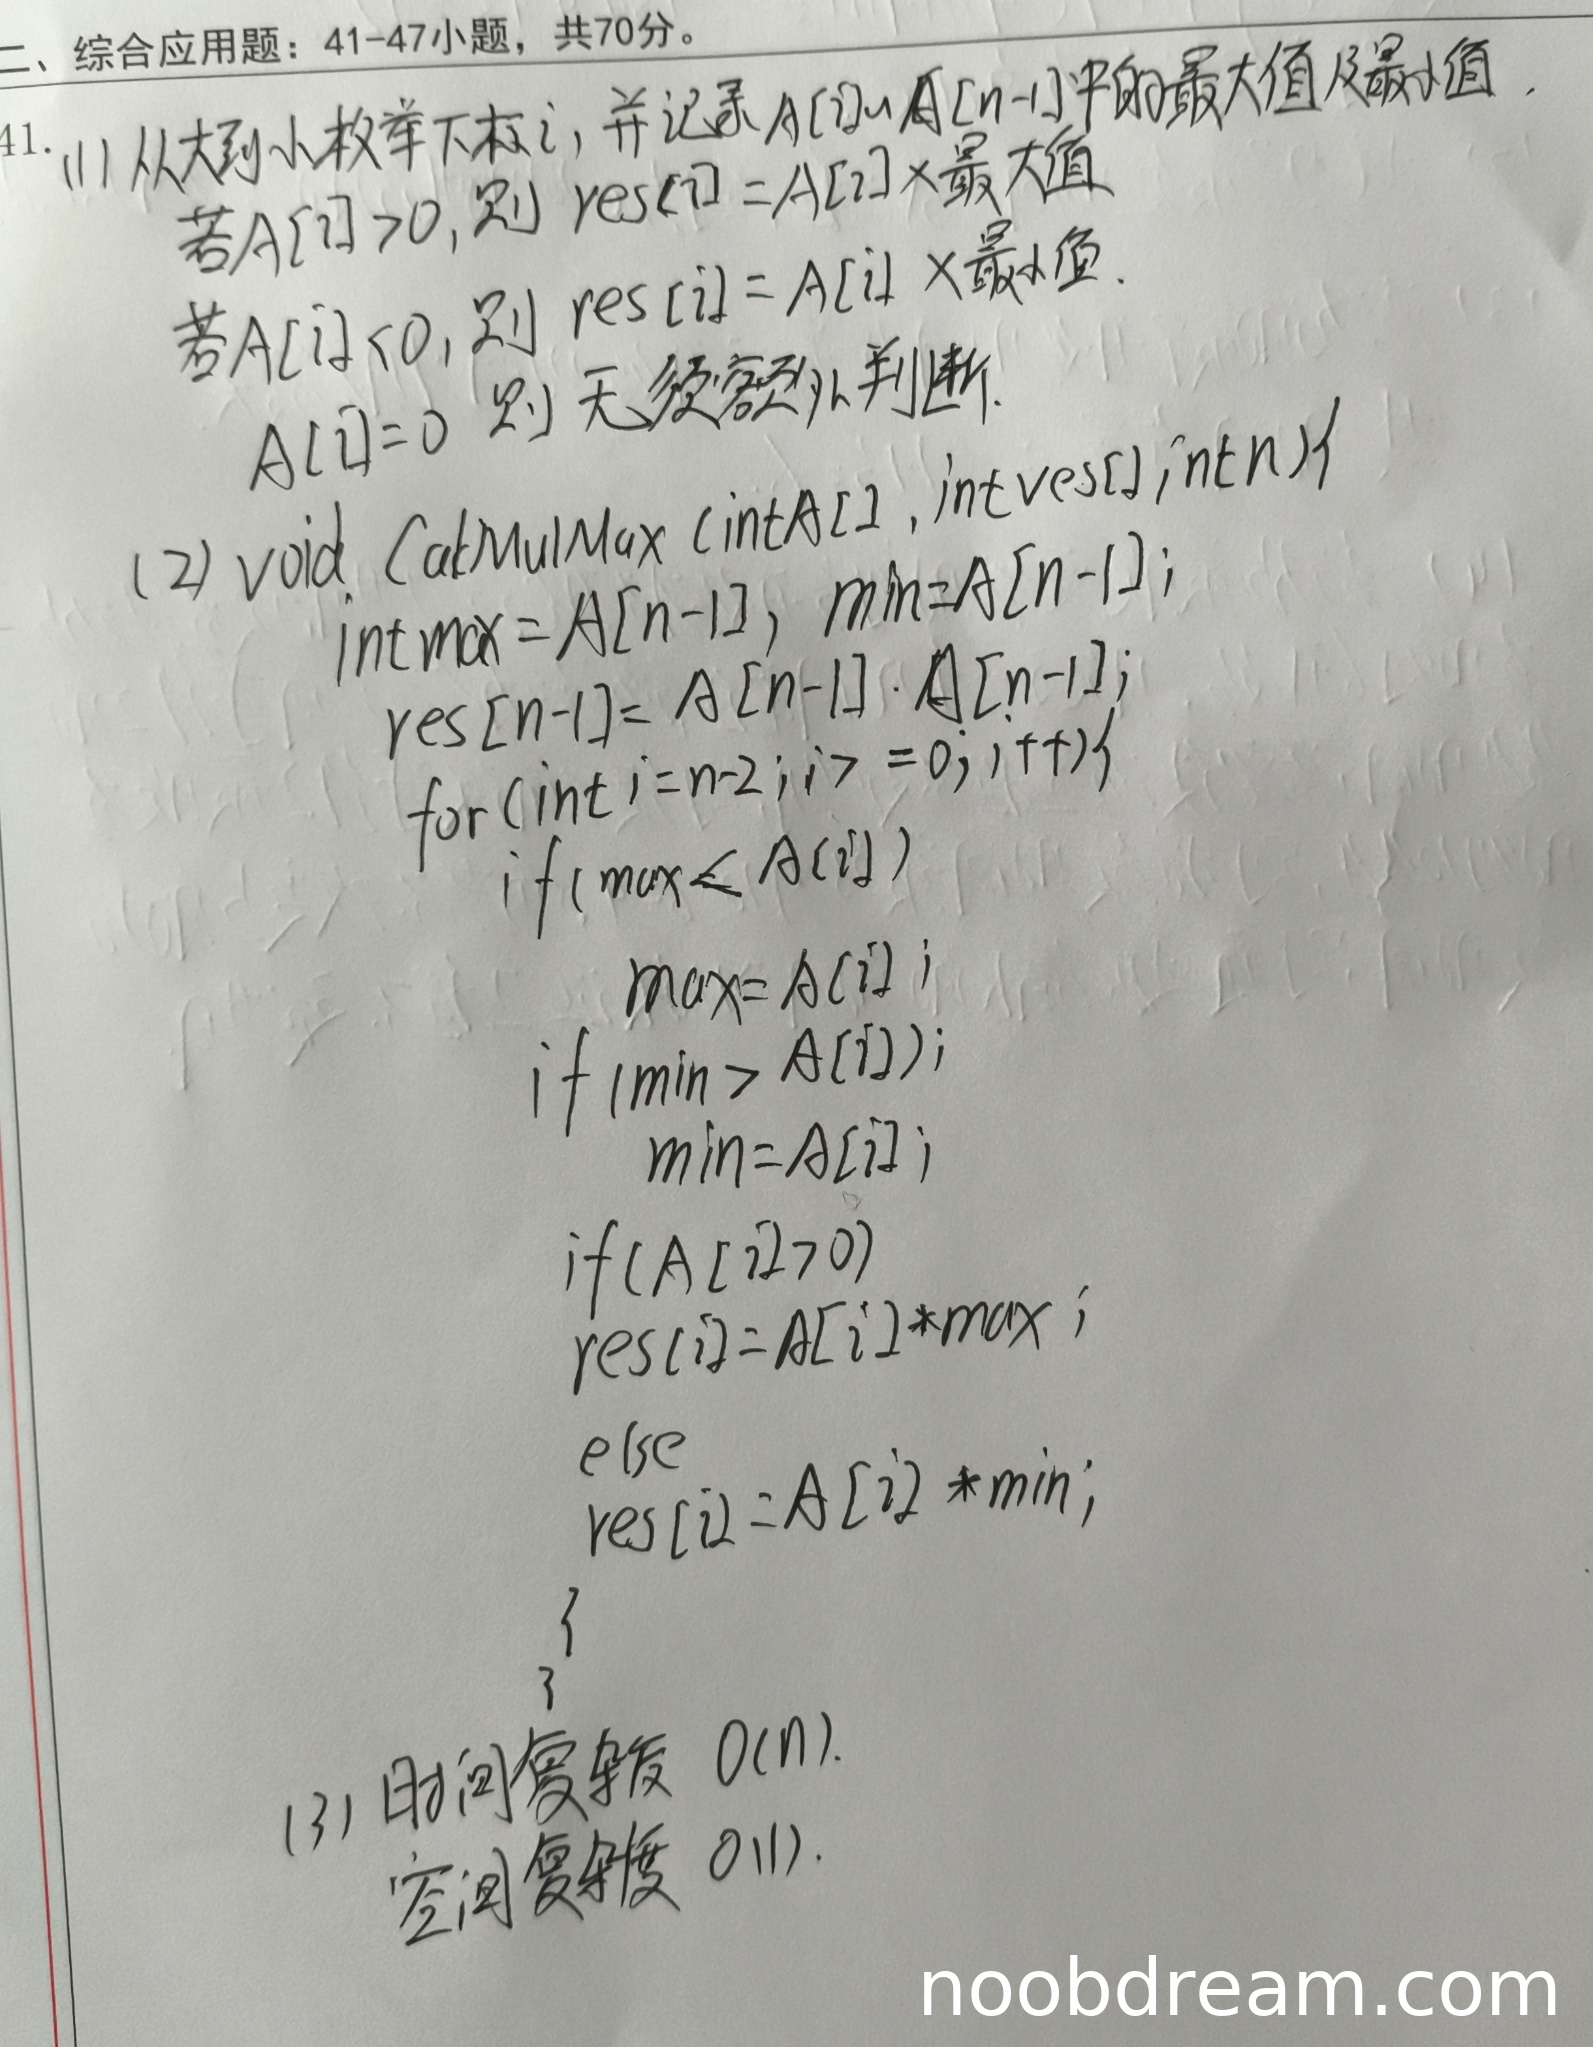 二、综合应用题：41-47小题，共70分。
41. (1) 从大到小枚举下标i，并记录A[i]~A[n-1]中的最大值及最小值.
若A[i]>0，则 res[i]=A[i]×最大值
若A[i]<0，则 res[i]=A[i]×最小值.
A[i]=0 则 无须额外判断.
(2) void CalMulMax (int A[], int res[], int n){
int max=A[n-1], min=A[n-1];
res[n-1]=A[n-1]·A[n-1];
for(int i=n-2; i>=0; i++){
if(max<A[i])
max=A[i];
if(min>A[i]);
min=A[i];
if(A[i]>0)
res[i]=A[i]*max;
else
res[i]=A[i]*min;
}
}
(3) 时间复杂度 O(n).
空间复杂度 O(1).
noobdream.com